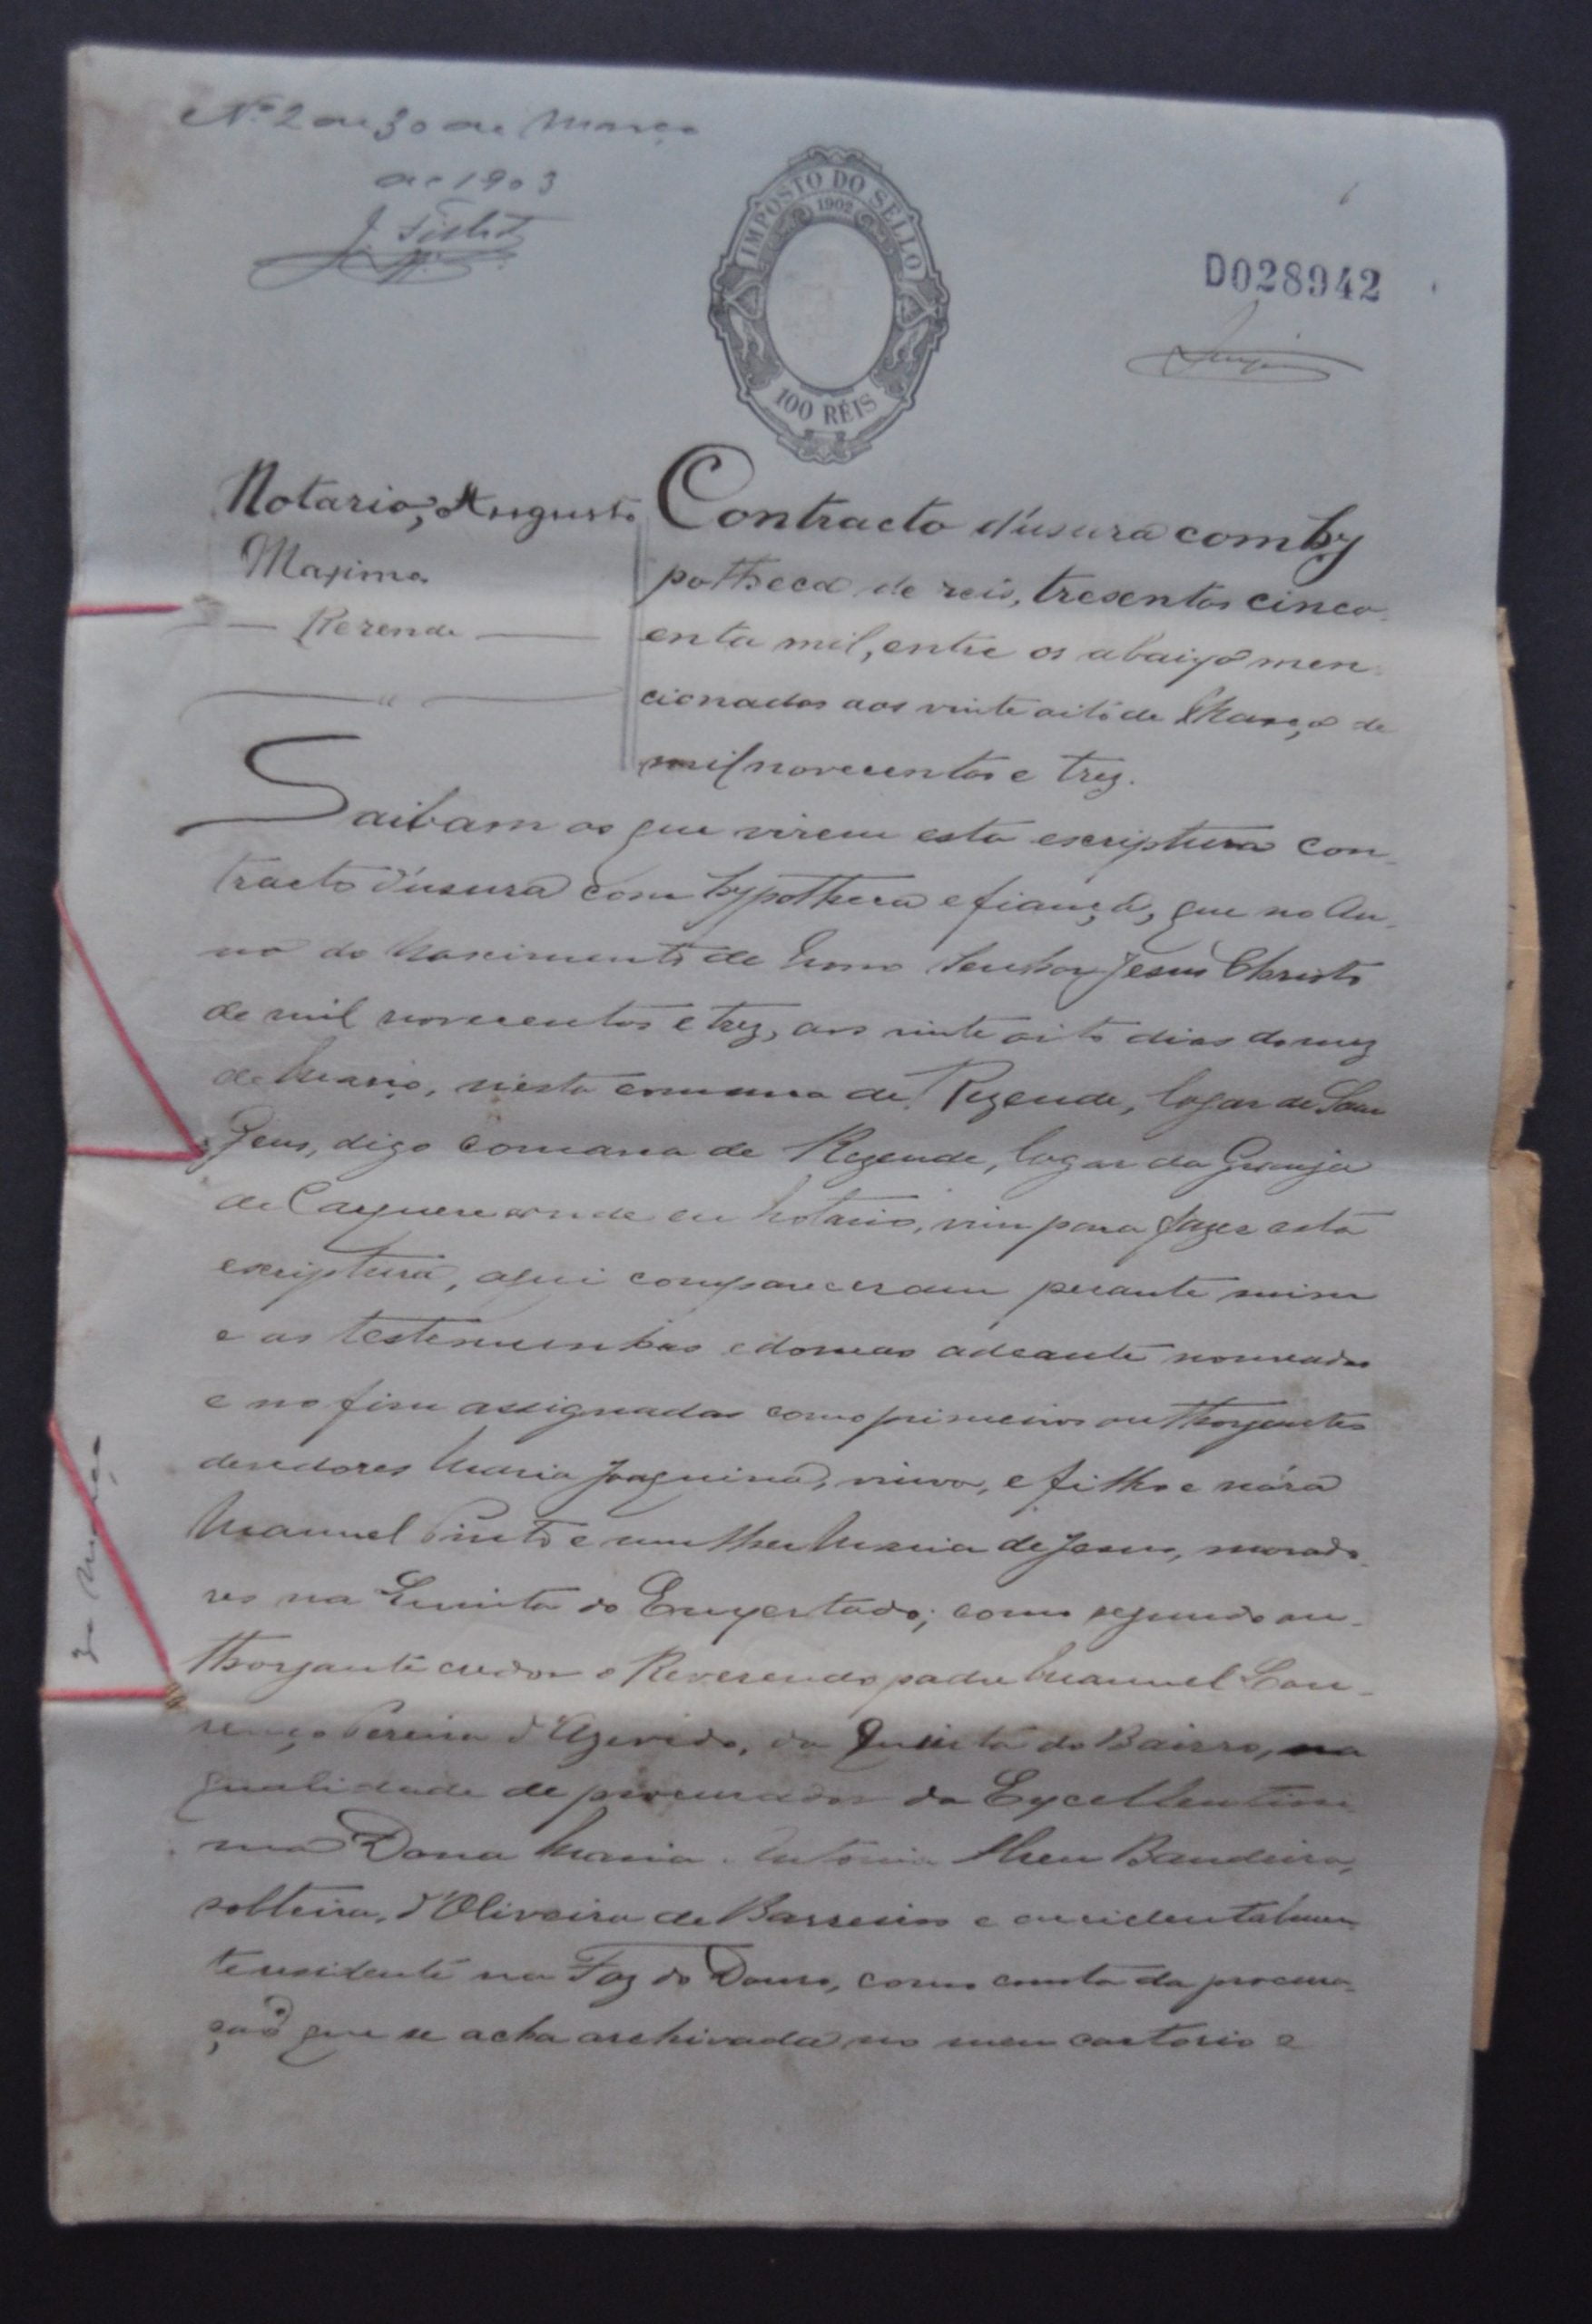 Nº 2 de 30 de Março
de 1903
IMPOSTO DO SELLO
1902
100 RÉIS
D028942
Notario, Augusto
Maximo
Rezende
Contracto d'usura com hy
potheca de reis, tresentos cinco-
enta mil, entre os abaixo men-
cionados aos vinte oito de Março de
mil novecentos e trez.
Saibam os que virem esta escriptura con-
tracto d'usura com hypotheca e fiança, que no An-
no do Nascimento de Nosso Senhor Jesus Christo
de mil novecentos e trez, aos vinte oito dias do mez
de Março, nesta comarca de Rezende, logar de
digo comarca de Rezende, logar da Granja
de Carquere onde eu Notario, vim para fazer esta
escriptura, aqui compareceram perante mim
e as testemunhas edoneas adeante nomeadas
e no fim assignadas como primeiros outhorgantes
devedores Maria Joaquina, viuva, e filho e nóra
Manuel Pinto e mulher Maria de Jesus, morado-
res na Quinta do Enxertado; como segundo ou-
thorgante credor o Reverendo padre Manuel Lou-
renço Pereira d'Azevedo, da Quinta do Bairro, na
qualidade de procurador da Excellentissi
ma Dona Maria Antonia Bandeira,
solteira, d'Oliveira de Barreiros e accidentalmen
te residente na Foz do Douro, como consta da procura-
ção que se acha archivada no meu cartorio e
30 Março